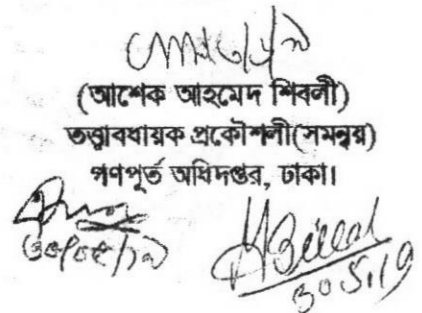 (আশেক আহমেদ শিবলী)
তত্ত্বাবধায়ক প্রকৌশলী(সমন্বয়)
গণপূর্ত অধিদপ্তর, ঢাকা।
30.5.19